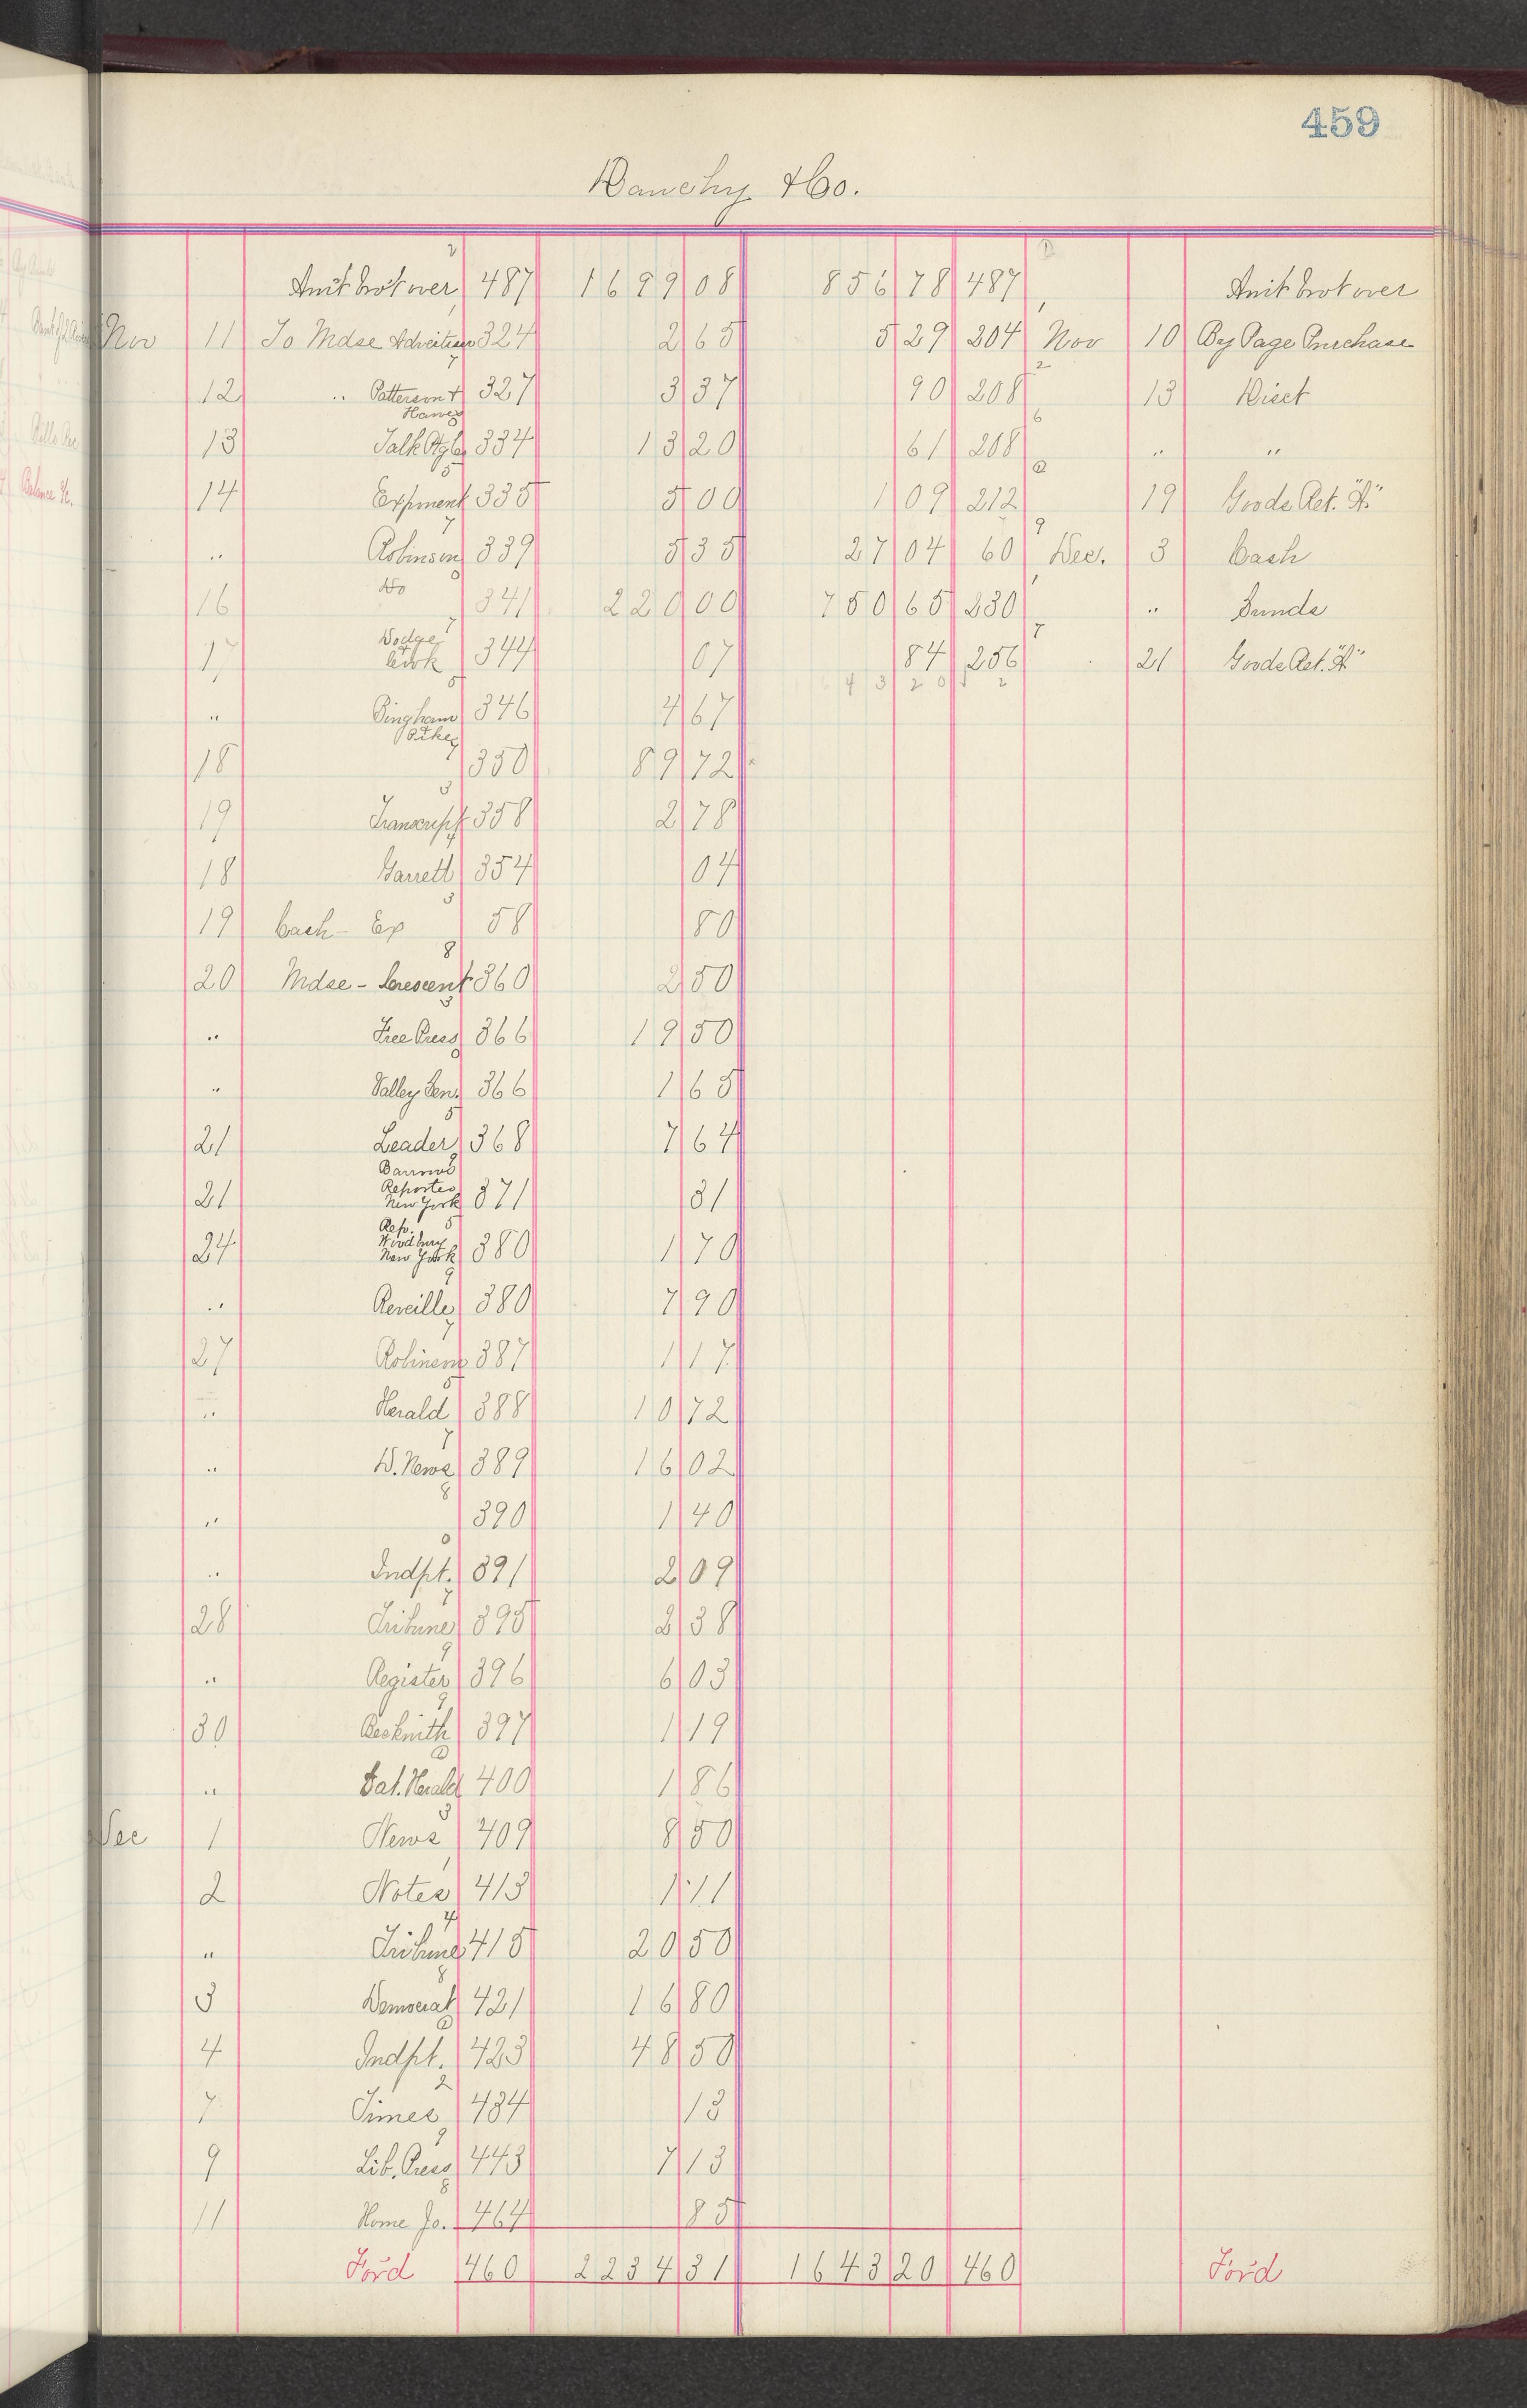 459
Dauchy & Co.
Amt brot over 487 1699 08 856 78 487 Amt brot over
Nov 11 To Mdse Advertiser 324 2 65 5 29 204 Nov 10 By Page Purchase
12 " Patterson & Hawes 327 3 37 90 208 13 Disct
13 334 13 20 61 208 " "
14 335 5 00 1 09 212 19 Goods Ret. "A"
" Robinson 339 5 35 27 04 60 Dec. 3 Cash
16 Do 341 220 00 750 65 230 " Sunds
17 Dodge & Cook 344 07 84 256 21 Goods Ret. "A"
1643 20
" Bingham & Pike 346 4 67
18 350 89 72
19 Transcript 358 2 78
18 Garrett 354 04
19 Cash - Ex 58 80
20 Mdse - Crescent 360 2 50
" Free Press 366 19 50
" Valley Sen. 366 1 65
21 Leader 368 7 64
21 Barnes Reporter New York 371 31
24 Rep. Woodbury New York 380 1 70
" Reveille 380 7 90
27 Robinson 387 1 17
" Herald 388 10 72
" D. News 389 16 02
" 390 1 40
" Indpt. 391 2 09
28 Tribune 395 2 38
" Register 396 6 03
30 Beckwith 397 1 19
" Sat. Herald 400 1 86
Dec 1 News 409 8 50
2 Notes 413 1 11
" Tribune 415 20 50
3 Democrat 421 16 80
4 Indpt. 423 48 50
7 Times 434 13
9 Lib. Press 443 7 13
11 Home Jo. 464 85
Ford 460 2234 31 1643 20 460 Ford